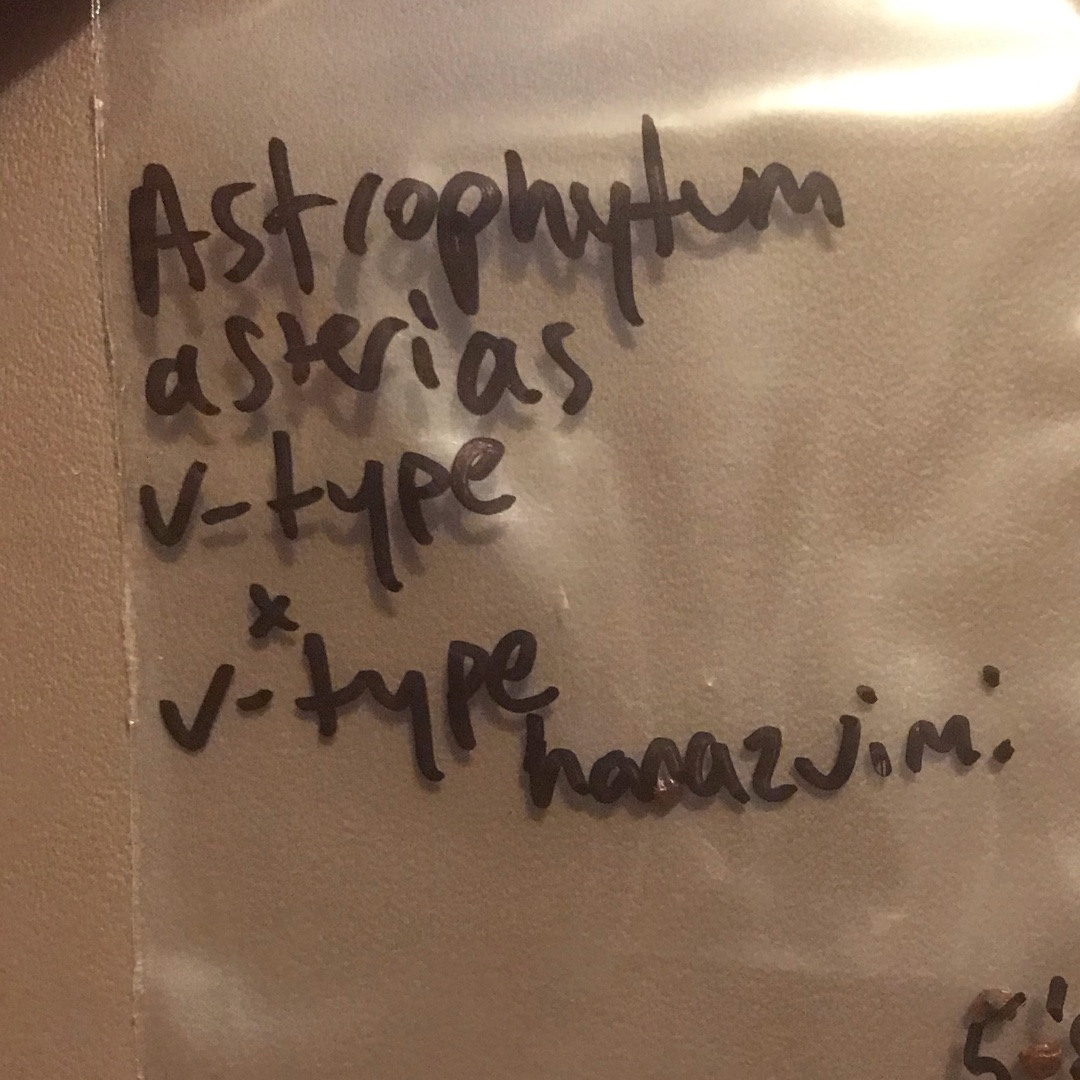 Astrophytum
asterias
v-type
x
v-type
hanazuimi
5'